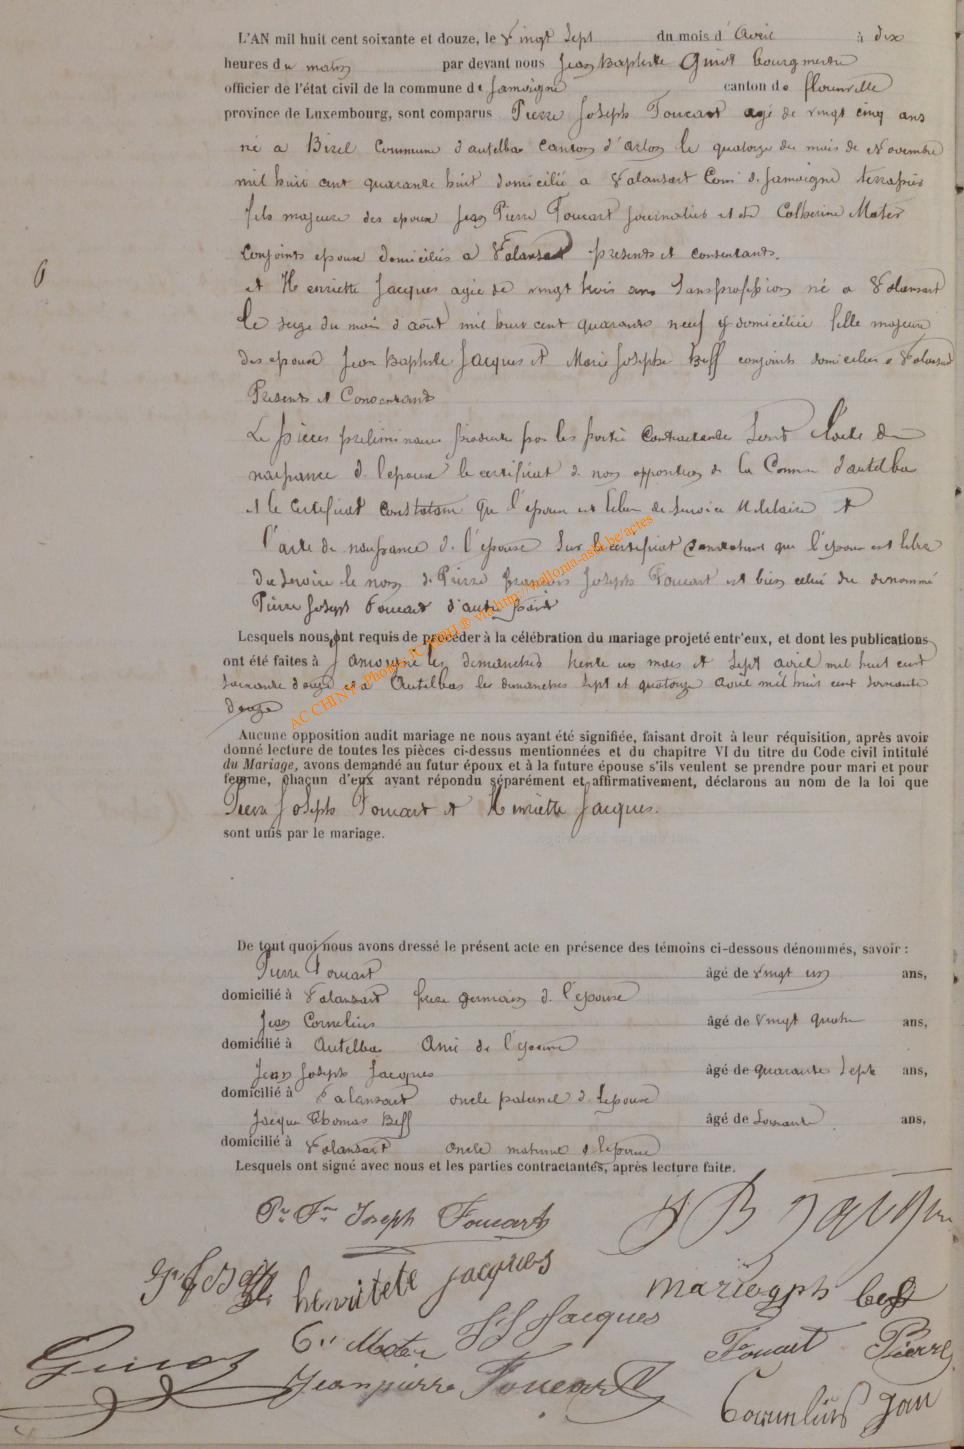 L'AN mil huit cent soixante et douze, le vingt sept du mois d'avril à dix
heures du matin par devant nous Jean Baptiste Guiot bourgmestre
officier de l'état civil de la commune de Jamoigne canton de florenville
province de Luxembourg, sont comparus Pierre Joseph Foucart agé de vingt cinq ans
né a Birel Commune d'autelbas canton d'arlon le quatorze du mois de Novembre
mil huit cent quarante huit domicilié a Valansart Com de Jamoigne terrassier
fils majeure des epoux Jean Pierre Foucart journalier et de Catherine Mater
conjoints epoux domiciliés a Valansart presents et consentants.
et Henriette Jacques agée de vingt trois ans Sans profession né a Valansart
le seize du mois d'août mil huit cent quarante neuf y domiciliée fille majeure
des epoux Jean Baptiste Jacques et Marie Josephe Beff conjoints domiciliés a Valansart
Presents et Consentants
Le pièces preliminaires produite par les partie contractante Sont l'acte de
naissance de l'epoux le certificat de non opposition de la Commune d'autelbas
et le Certificat constatant que l'epoux est libre de service Militaire et
l'acte de naissance de l'épouse Sur le certificat constatant que l'epoux est libre
du service le nom de Pierre françois Joseph Foucart est bien celui du denommé
Pierre Joseph Foucart d'autre part
Lesquels nous ont requis de procéder à la célébration du mariage projeté entr'eux, et dont les publications
ont été faites à Jamoigne les dimanches trente un mars et sept avril mil huit cent
soixante douze et a Autelbas les dimanches sept et quatorze avril mil huit cent soixante
douze
Aucune opposition audit mariage ne nous ayant été signifiée, faisant droit à leur réquisition, après avoir
donné lecture de toutes les pièces ci-dessus mentionnées et du chapitre VI du titre du Code civil intitulé
du Mariage, avons demandé au futur époux et à la future épouse s'ils veulent se prendre pour mari et pour
femme, chacun d'eux ayant répondu séparément et affirmativement, déclarons au nom de la loi que
Pierre Joseph Foucart et Henriette Jacques.
sont unis par le mariage.
De tout quoi nous avons dressé le présent acte en présence des témoins ci-dessous dénommés, savoir :
Pierre Foucart âgé de vingt un ans,
domicilié à Valansart frere germain de l'epoux
Jean Cornelius âgé de vingt quatre ans,
domicilié à Autelbas Ami de l'epoux
Jean Joseph Jacques âgé de quarante sept ans,
domicilié à Valansart oncle paternel de l'epouse
Jacque Thomas Beff âgé de soixante ans,
domicilié à Valansart oncle maternel de l'epouse
Lesquels ont signé avec nous et les parties contractantes, après lecture faite.
Pre Fois Joseph Foucart
J B Jacques
henriitete jacques
marie josph beff
J J Jacques
Guiot
Cne Mater
Foucart Pierre
Jean pierre Foucart
Cornelius Jean
AC CHINY - Photos JC MHRI ® via http://wallonia-asbl.be/actes